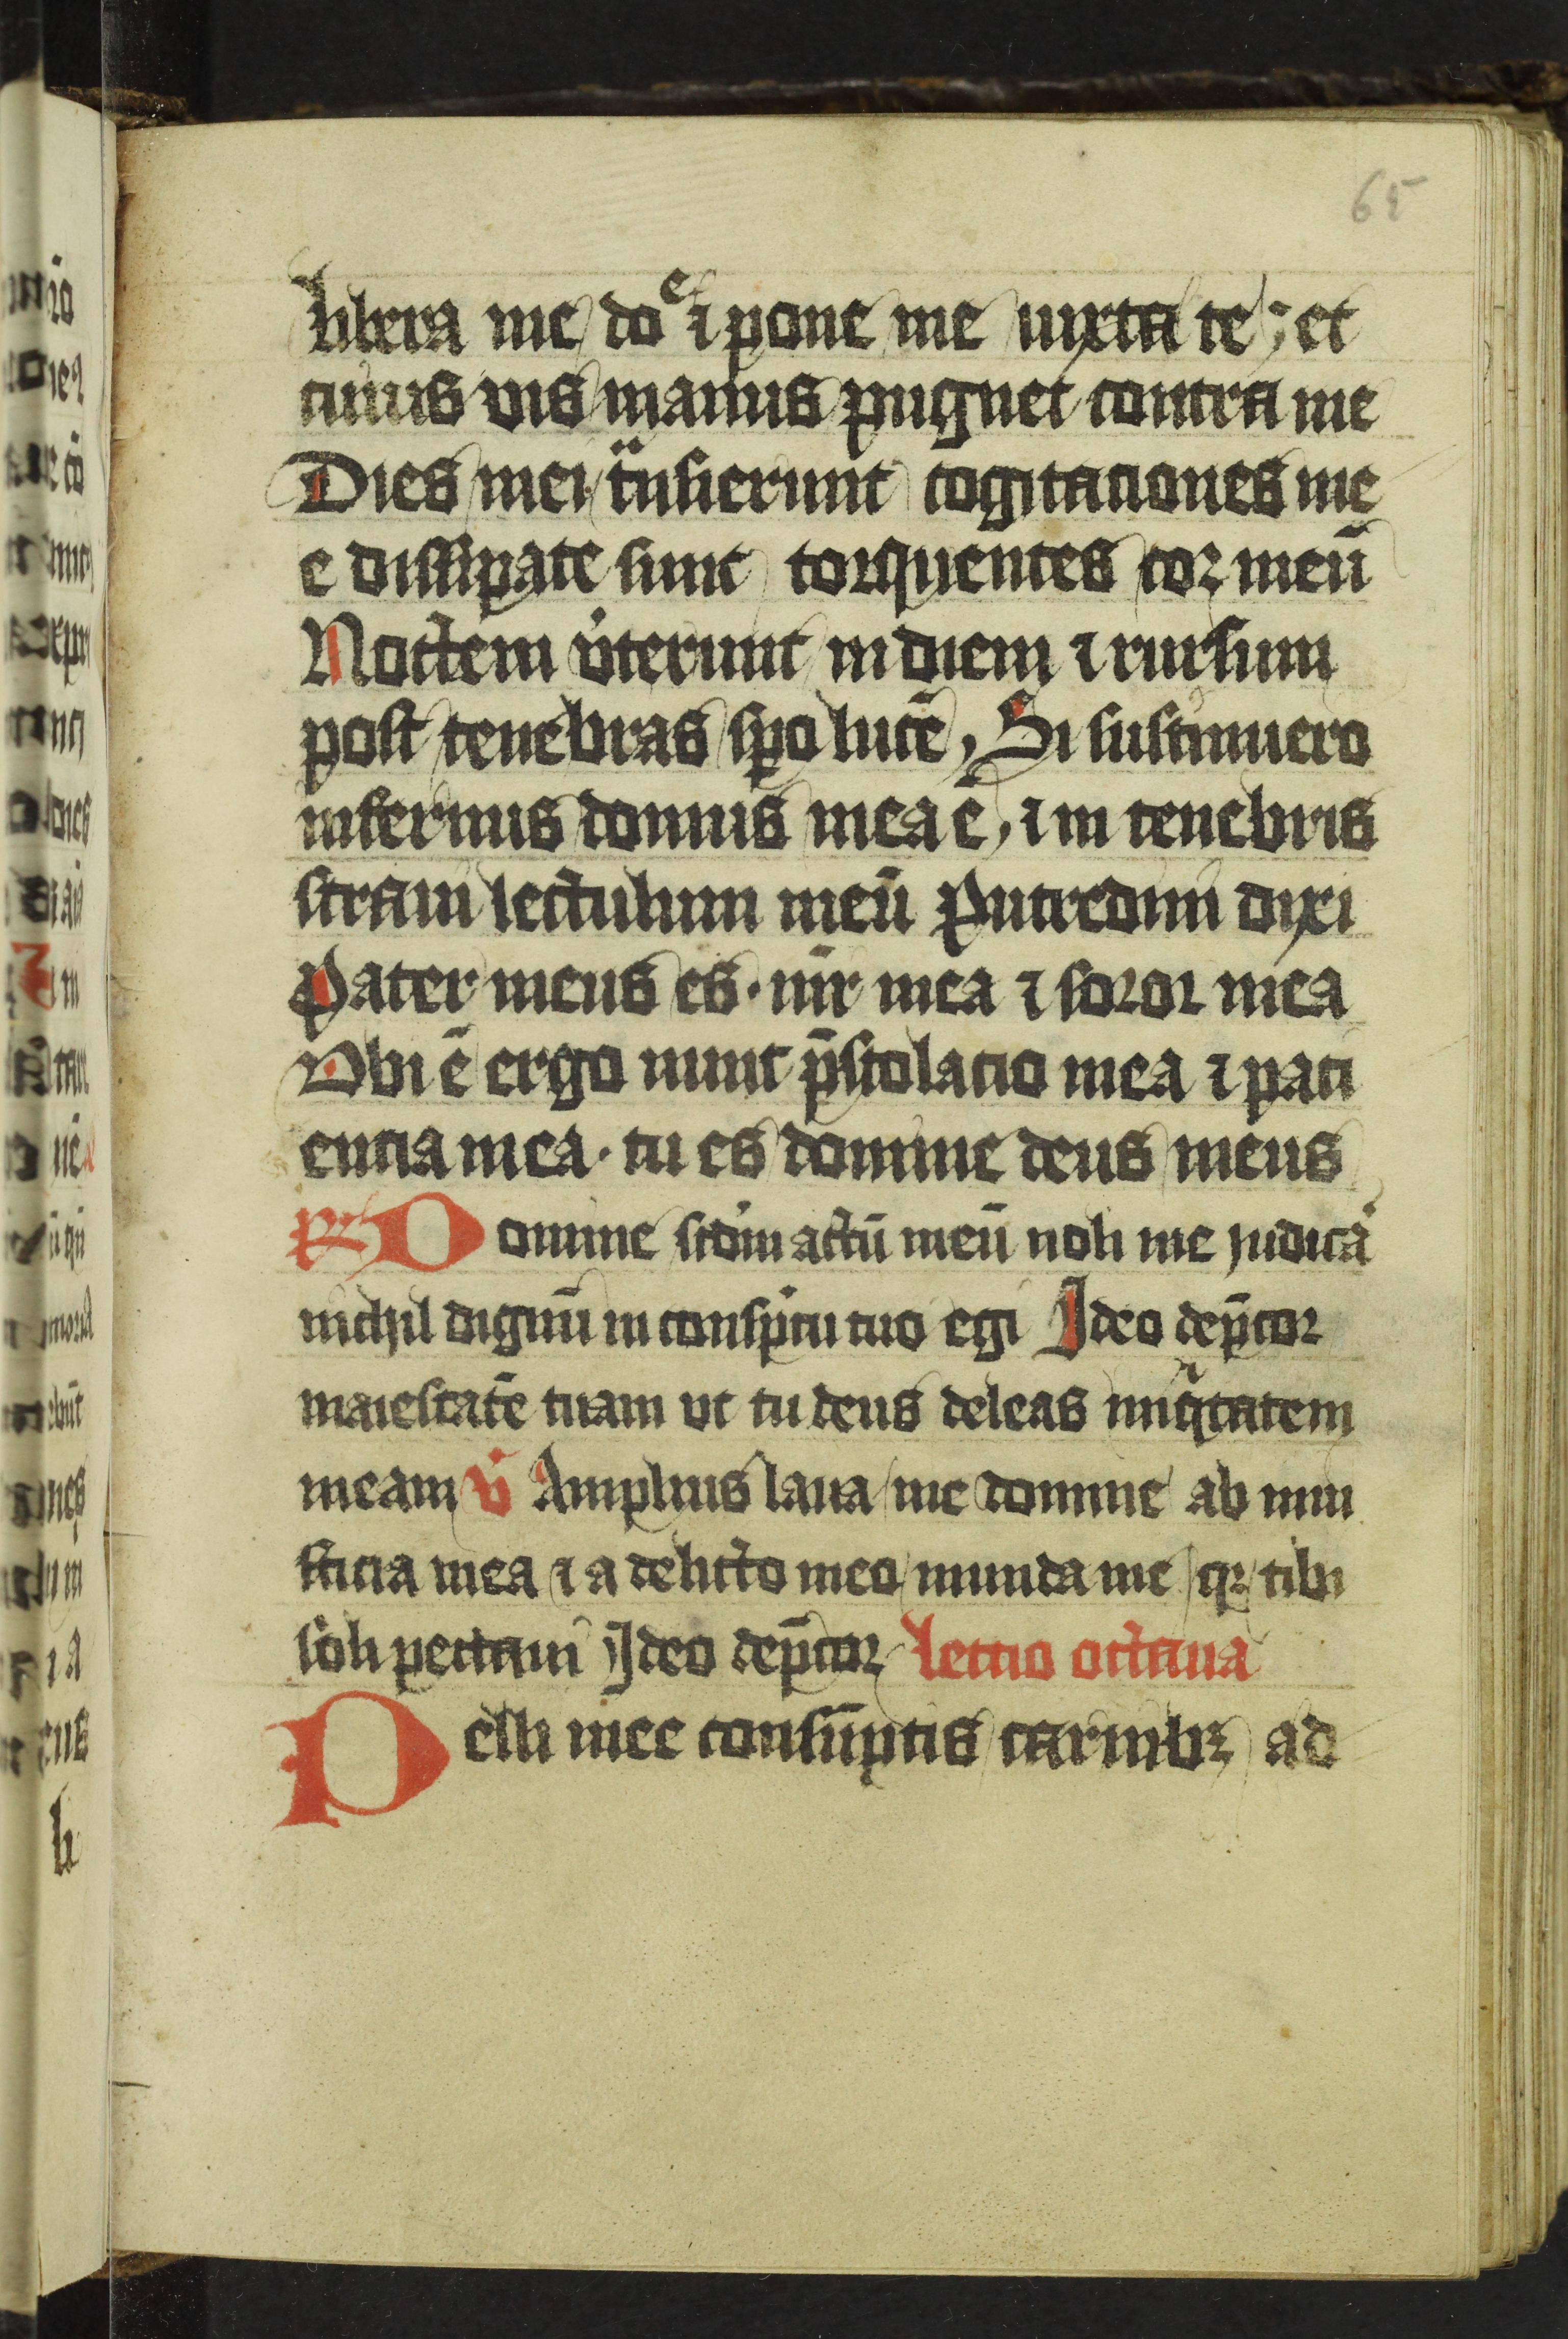 65
libera me doᵉ ⁊ pone me iuxta te; et
cuius vis manus pugnet contra me
Dies mei tͣnsierunt cogitaciones me
e dissipate sunt torquentes cor meū
Noctem v̓terunt in diem ⁊ rursum
post tenebras spo lucē, Si sustinuero
infernus domus mea ē, ⁊ in tenebris
straui lectulum meū Putredini dixi
Pater meus es · mr̄ mea ⁊ soror mea
Vbi ē ergo nunc p̄stolacio mea ⁊ paci
encia mea · tu es domine deus meus
℟ Domine scd̓m actū meū noli me judica᷑
nichil dignū in consp̄ctu tuo egi Ideo dep̄cor
maiestatē tuam vt tu deus deleas iniqͥtatem
meam v̓ Amplius laua me domine ab iniu
sticia mea ⁊ a delicto meo munda me qꝛ tibi
soli peccaui Ideo dep̄cor Lectio octaua
Pelli mee consūptis carnibꝫ ad